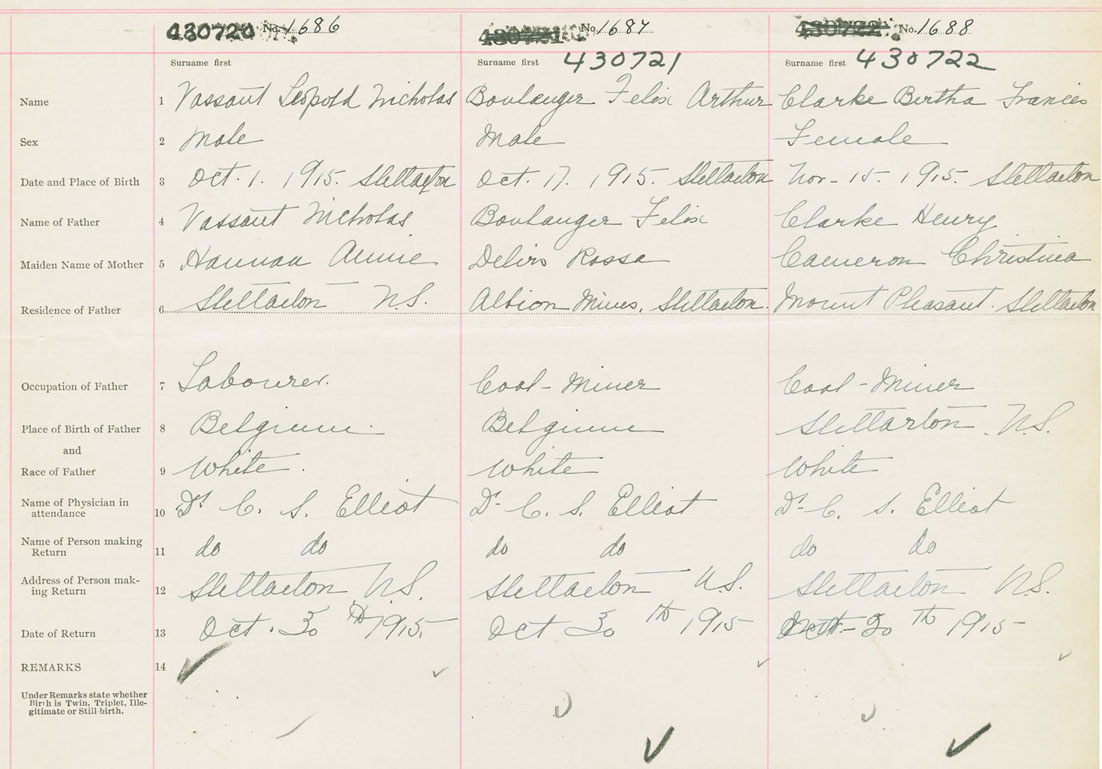 430720 No. 1686 No. 1687 No. 1688
Surname first Surname first 430721 Surname first 430722
Name 1 Vassaut Leopold Nicholas Boulanger Felix Arthur Clarke Bertha Frances
Sex 2 Male Male Female
Date and Place of Birth 3 Oct. 1. 1915. Stellarton Oct. 17. 1915. Stellarton Nov - 15 - 1915. Stellarton
Name of Father 4 Vassaut Nicholas Boulanger Felix Clarke Henry
Maiden Name of Mother 5 Hannan Annie Rossa Cameron Christina
Residence of Father 6 Stellarton N.S. Albion Mines, Stellarton. Mount Pleasant. Stellarton
Occupation of Father 7 Labourer. Coal-Miner Coal-Miner
Place of Birth of Father 8 Belgium. Belgium Stellarton N.S.
and
Race of Father 9 White. White White
Name of Physician in
attendance 10 Dr C. S. Elliot Dr C. S. Elliot Dr C. S. Elliot
Name of Person making
Return 11 do do do do do do
Address of Person mak-
ing Return 12 Stellarton N.S. Stellarton N.S. Stellarton N.S.
Date of Return 13 Oct. 30th 1915. Oct 30th 1915 30th 1915
REMARKS 14
Under Remarks state whether
Birth is Twin, Triplet, Ille-
gitimate or Still-birth.